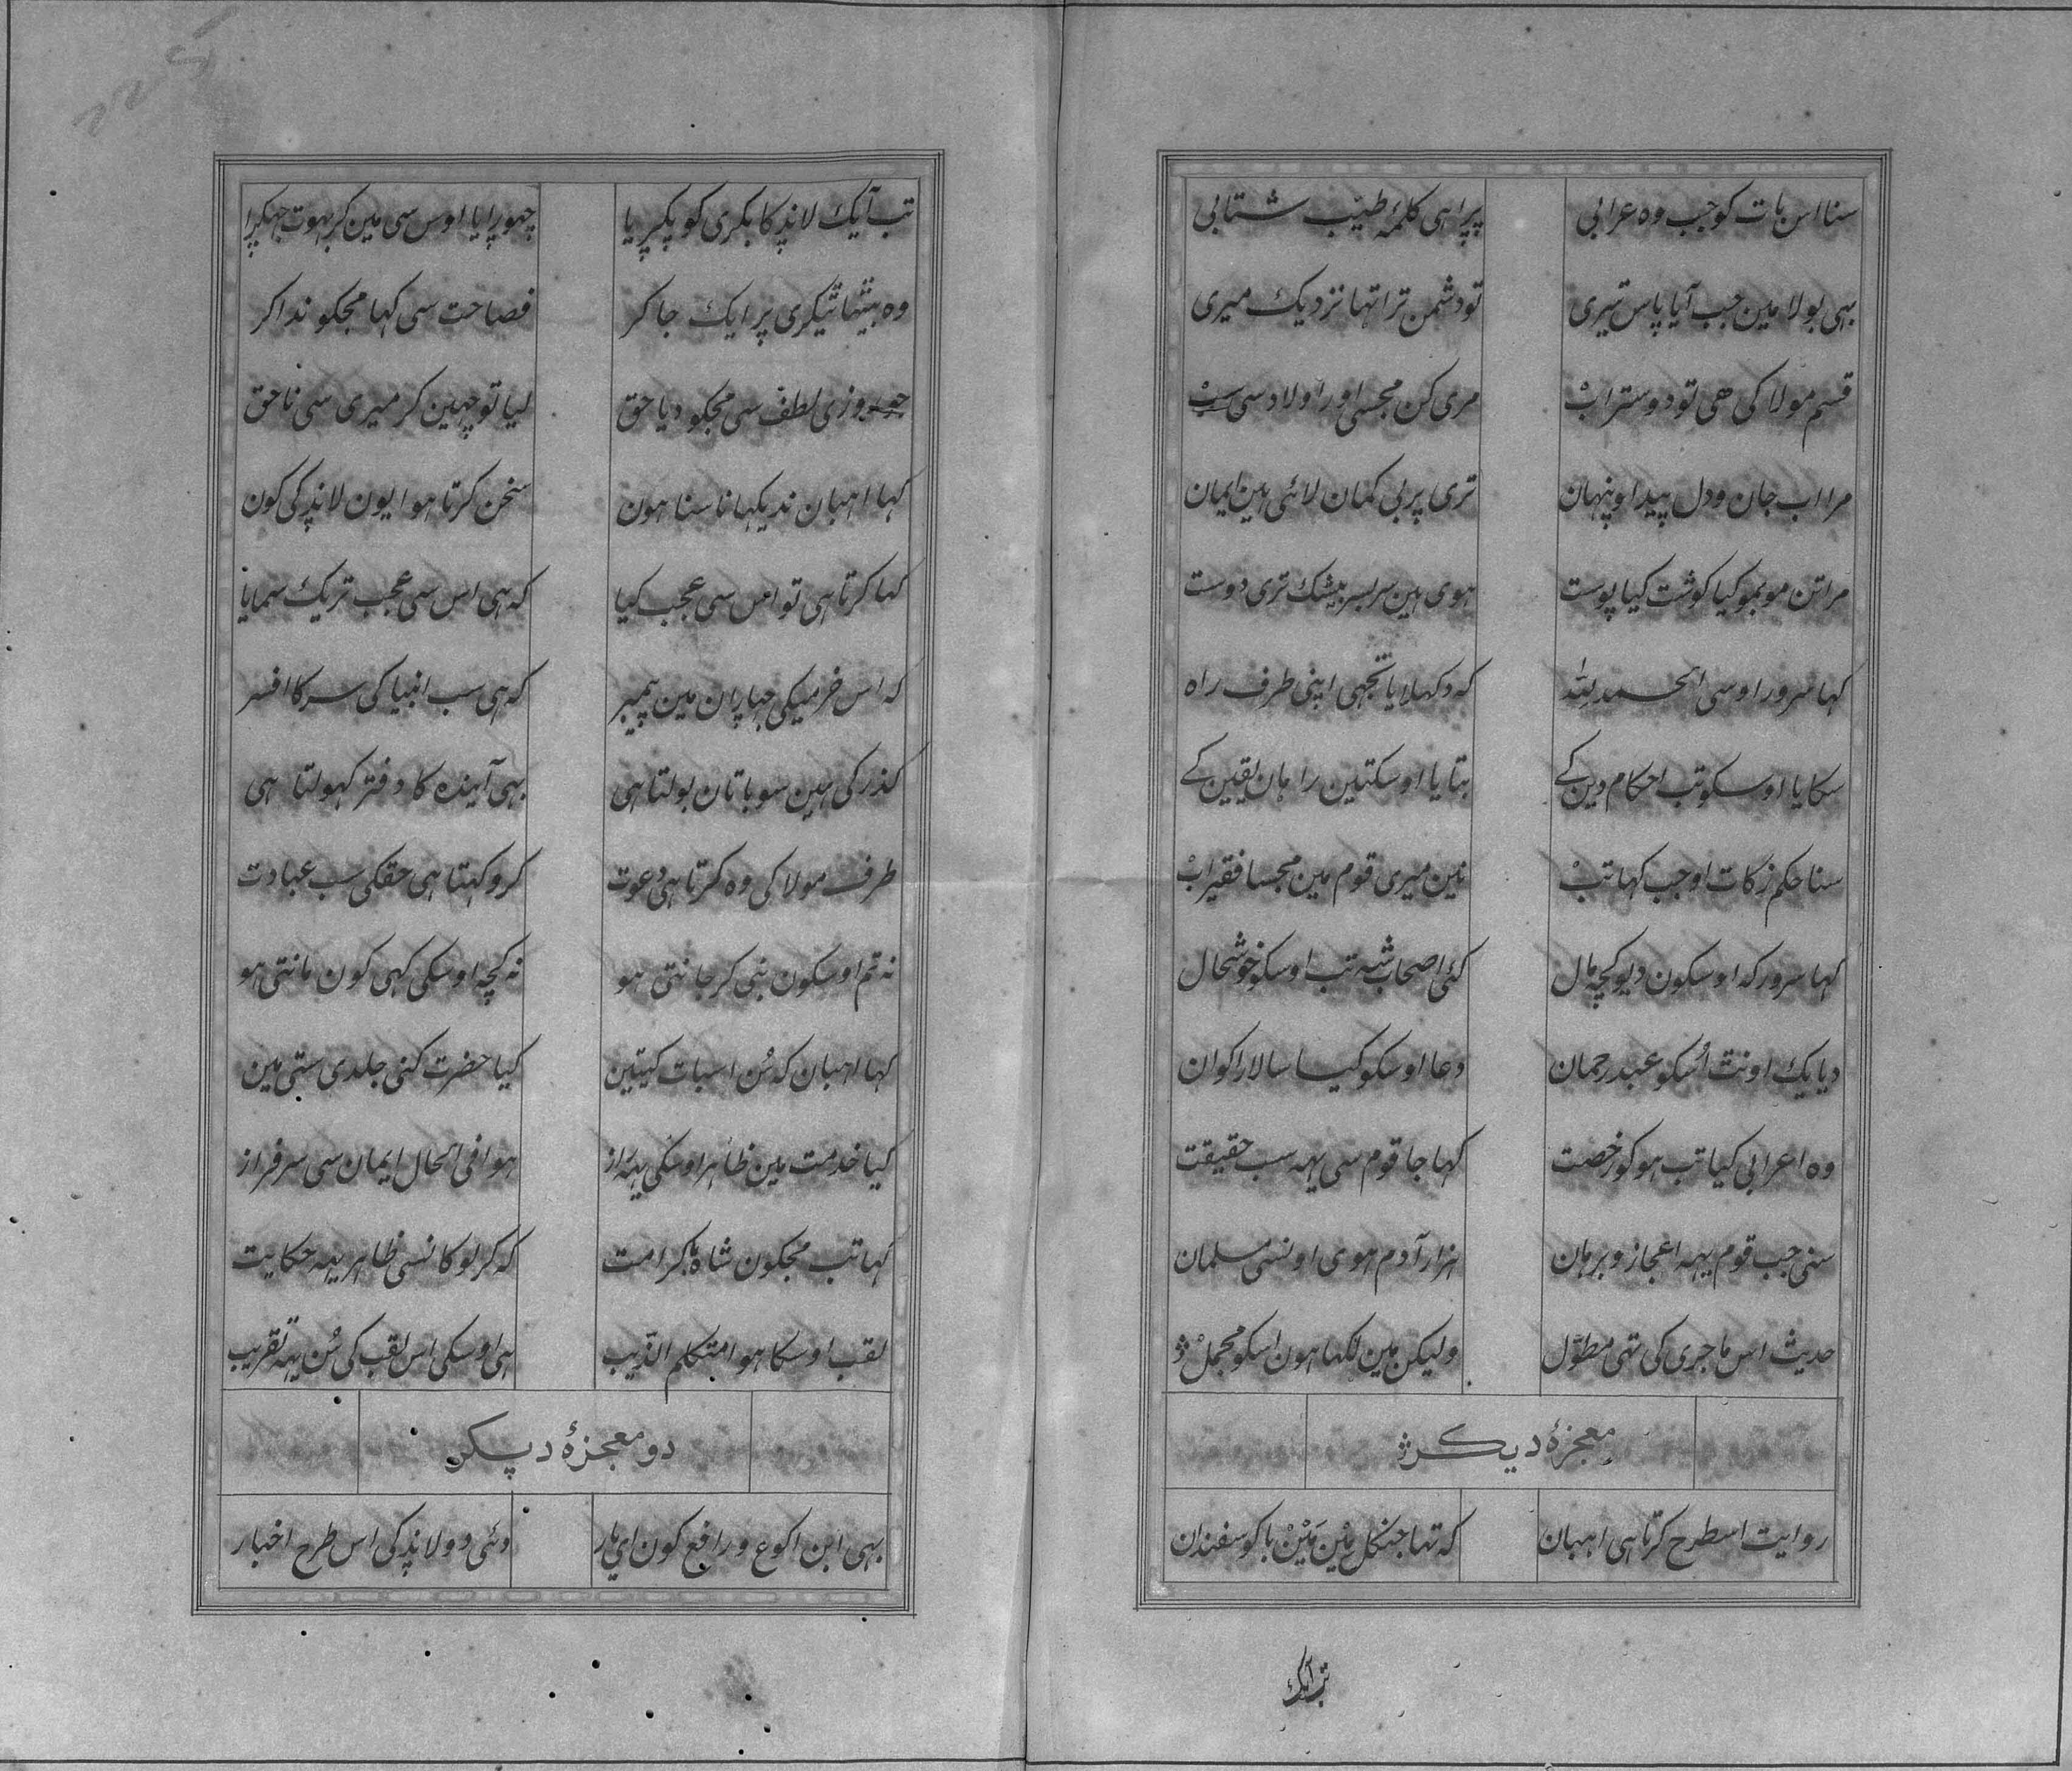 سنا اس بات کو جب وہ عرابی پڑاہی کلمۂ طیب شتابی
بہی بولا مین جب آیا پاس تیری تو دشمن ترا تہا نزدیک میری
قسم مولا کی ھی تو دوستر اب مری کن مجسی اور اولاد سی سب
مرا اب جان و دل پیدا و پنہان تری پر بی کمان لائی ہین ایمان
مرا تن مو بمو کیا کوشت کیا پوست ہوی ہین سربسر بیشک تری دوست
کہا سرور اوسی الحمد للہ کہ دکہلایا تجہی اپنی طرف راہ
سکایا اوسکو تب احکام دین کے بتایا اوسکتئین راہان یقین کے
سنا حکم زکات او جب کہا تب نین میری قوم مین مجسا فقیر اب
کہا سرور کہ اوسکون دیو کچہ مال کئی اصحاب شہ تب اوسکو خوشحال
دیا یک اونٹ اُسکو عبد رحمان دعا اوسکو کیا سالار اکوان
وہ اعرابی کیا تب ہو کو رخصت کہا جا قوم سی یہہ سب حقیقت
سنی جب قوم یہہ اعجاز و برہان ہزار آدم ہوی اونسی مسلمان
حدیث اس ماجری کی تہی مطوّل ولیکن مین لکہا ہون اسکو مجمل
معجزۂ دیکر
روایت اسطرح کرتا ہی اہبان کہ تہا جنکل مین مَین با کوسفندان
تب آیک
تب آیک لانڈکا بکری کو پکڑیا چہوڑایا اوس سی مین کر بہوت جہکڑا
وہ بیٹہا ٹیکری پر ایک جا کر فصاحت سی کہا مجکو ندا کر
جو روزی لطف سی مجکو دیا حق لیا تو چہین کر میری سی ناحق
کہا اہبان ندیکہا نا سنا ہون سخن کرتا ہوا یون لانڈکی کون
کہا کرتا ہی تو اس سی عجب کیا کہ ہی اس سی عجب تر یک سمایا
کہ اس خرمیکی جہاڑان مین پیمبر کہ ہی سب انبیا کی سر کا افسر
کذر کی ہین سو باتان بولتا ہی بہی آیندہ کا دفتر کہولتا ہی
طرف مولا کی وہ کرتا ہی دعوت کرو کہتا ہی حقکی سب عبادت
نہ تم اوسکون نبی کر جانتی ہو نہ کچہ اوسکی کہی کون مانتی ہو
کہا اہبان کہ سُن اسبات کیتین کیا حضرت کنی جلدی ستی مین
کیا خدمت مین ظاہر اوسکی یہہ راز ہوا فی الحال ایمان سی سرفراز
کہا تب مجکون شاہ با کرامت کہ کر لوکانسی ظاہر یہہ حکایت
لقب اوسکا ہوا متکلم الذّیب ہی اوسکی اس لقب کی سُن یہہ تقریب
دو معجزۂ دیکر
بہی ابن اکوع و رافع کون ای یار دئی دو لانڈکی اس طرح اخبار